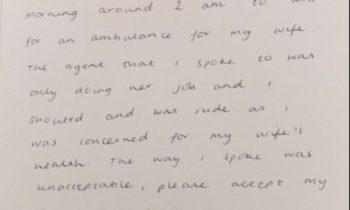 morning around 2 am to ask
for an ambulance for my wife.
The agent that I spoke to was
only doing her job and I
shouted and was rude as I
was concerned for my wife's
health. The way I spoke was
unacceptable, please accept my